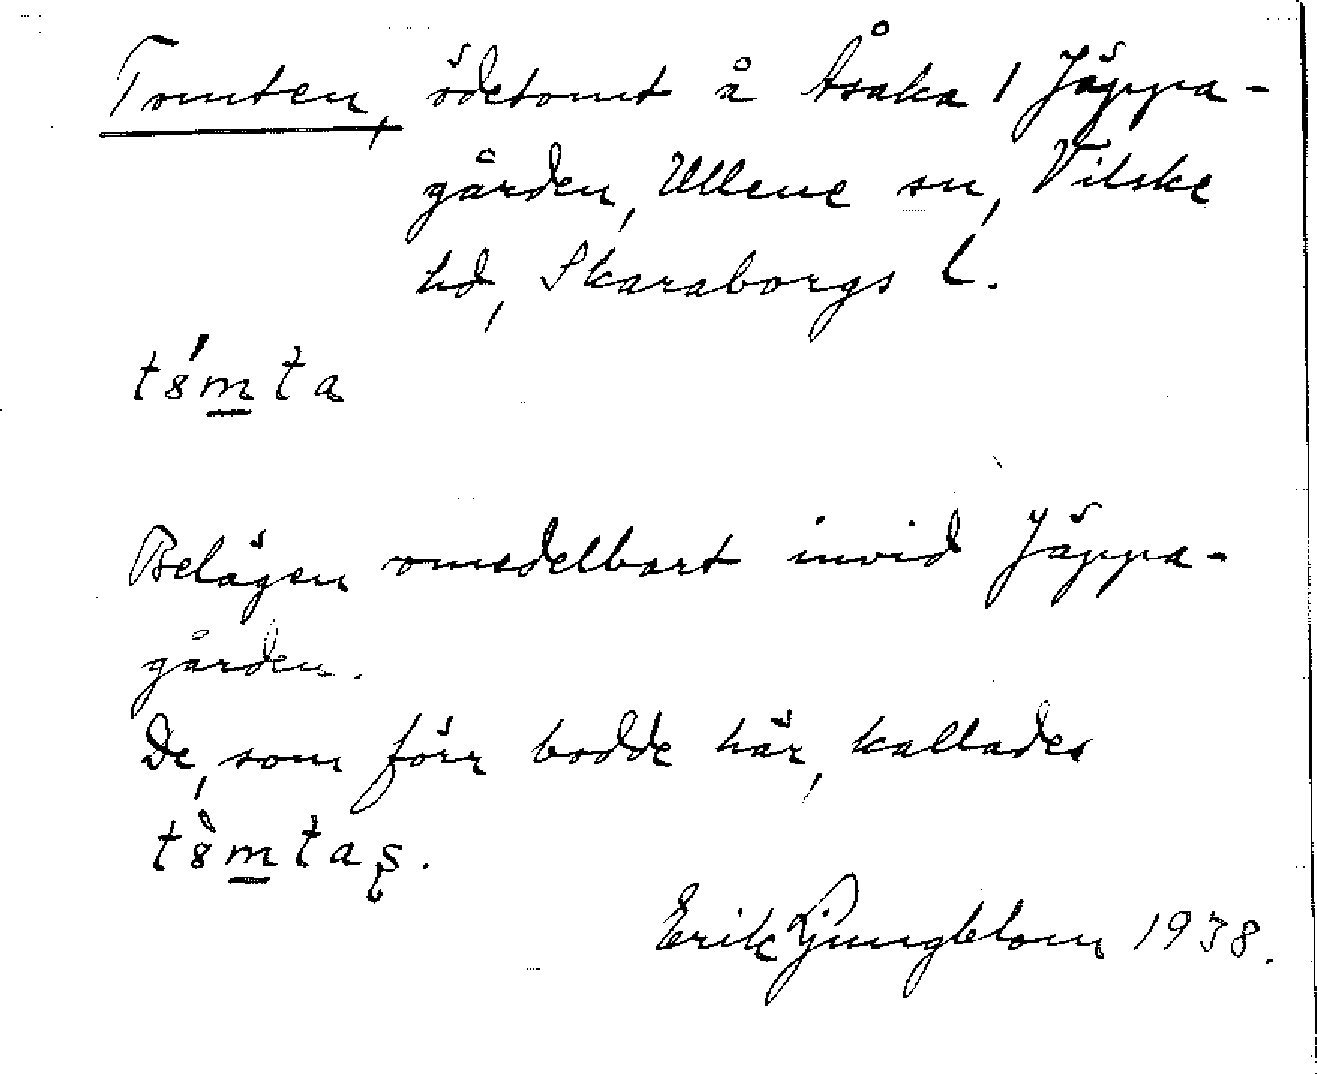 Tomten, ödetomt å Åsaka 1 Jäppa-
gården, Ullene sn, Vilske
hd, Skaraborgs l.
t8́m̲ta
Belägen omedelbart invid Jäppa-
gården.
De, som förr bodde här, kallades
t8̀m̲taʂ.
Erik Ljungblom 1938.